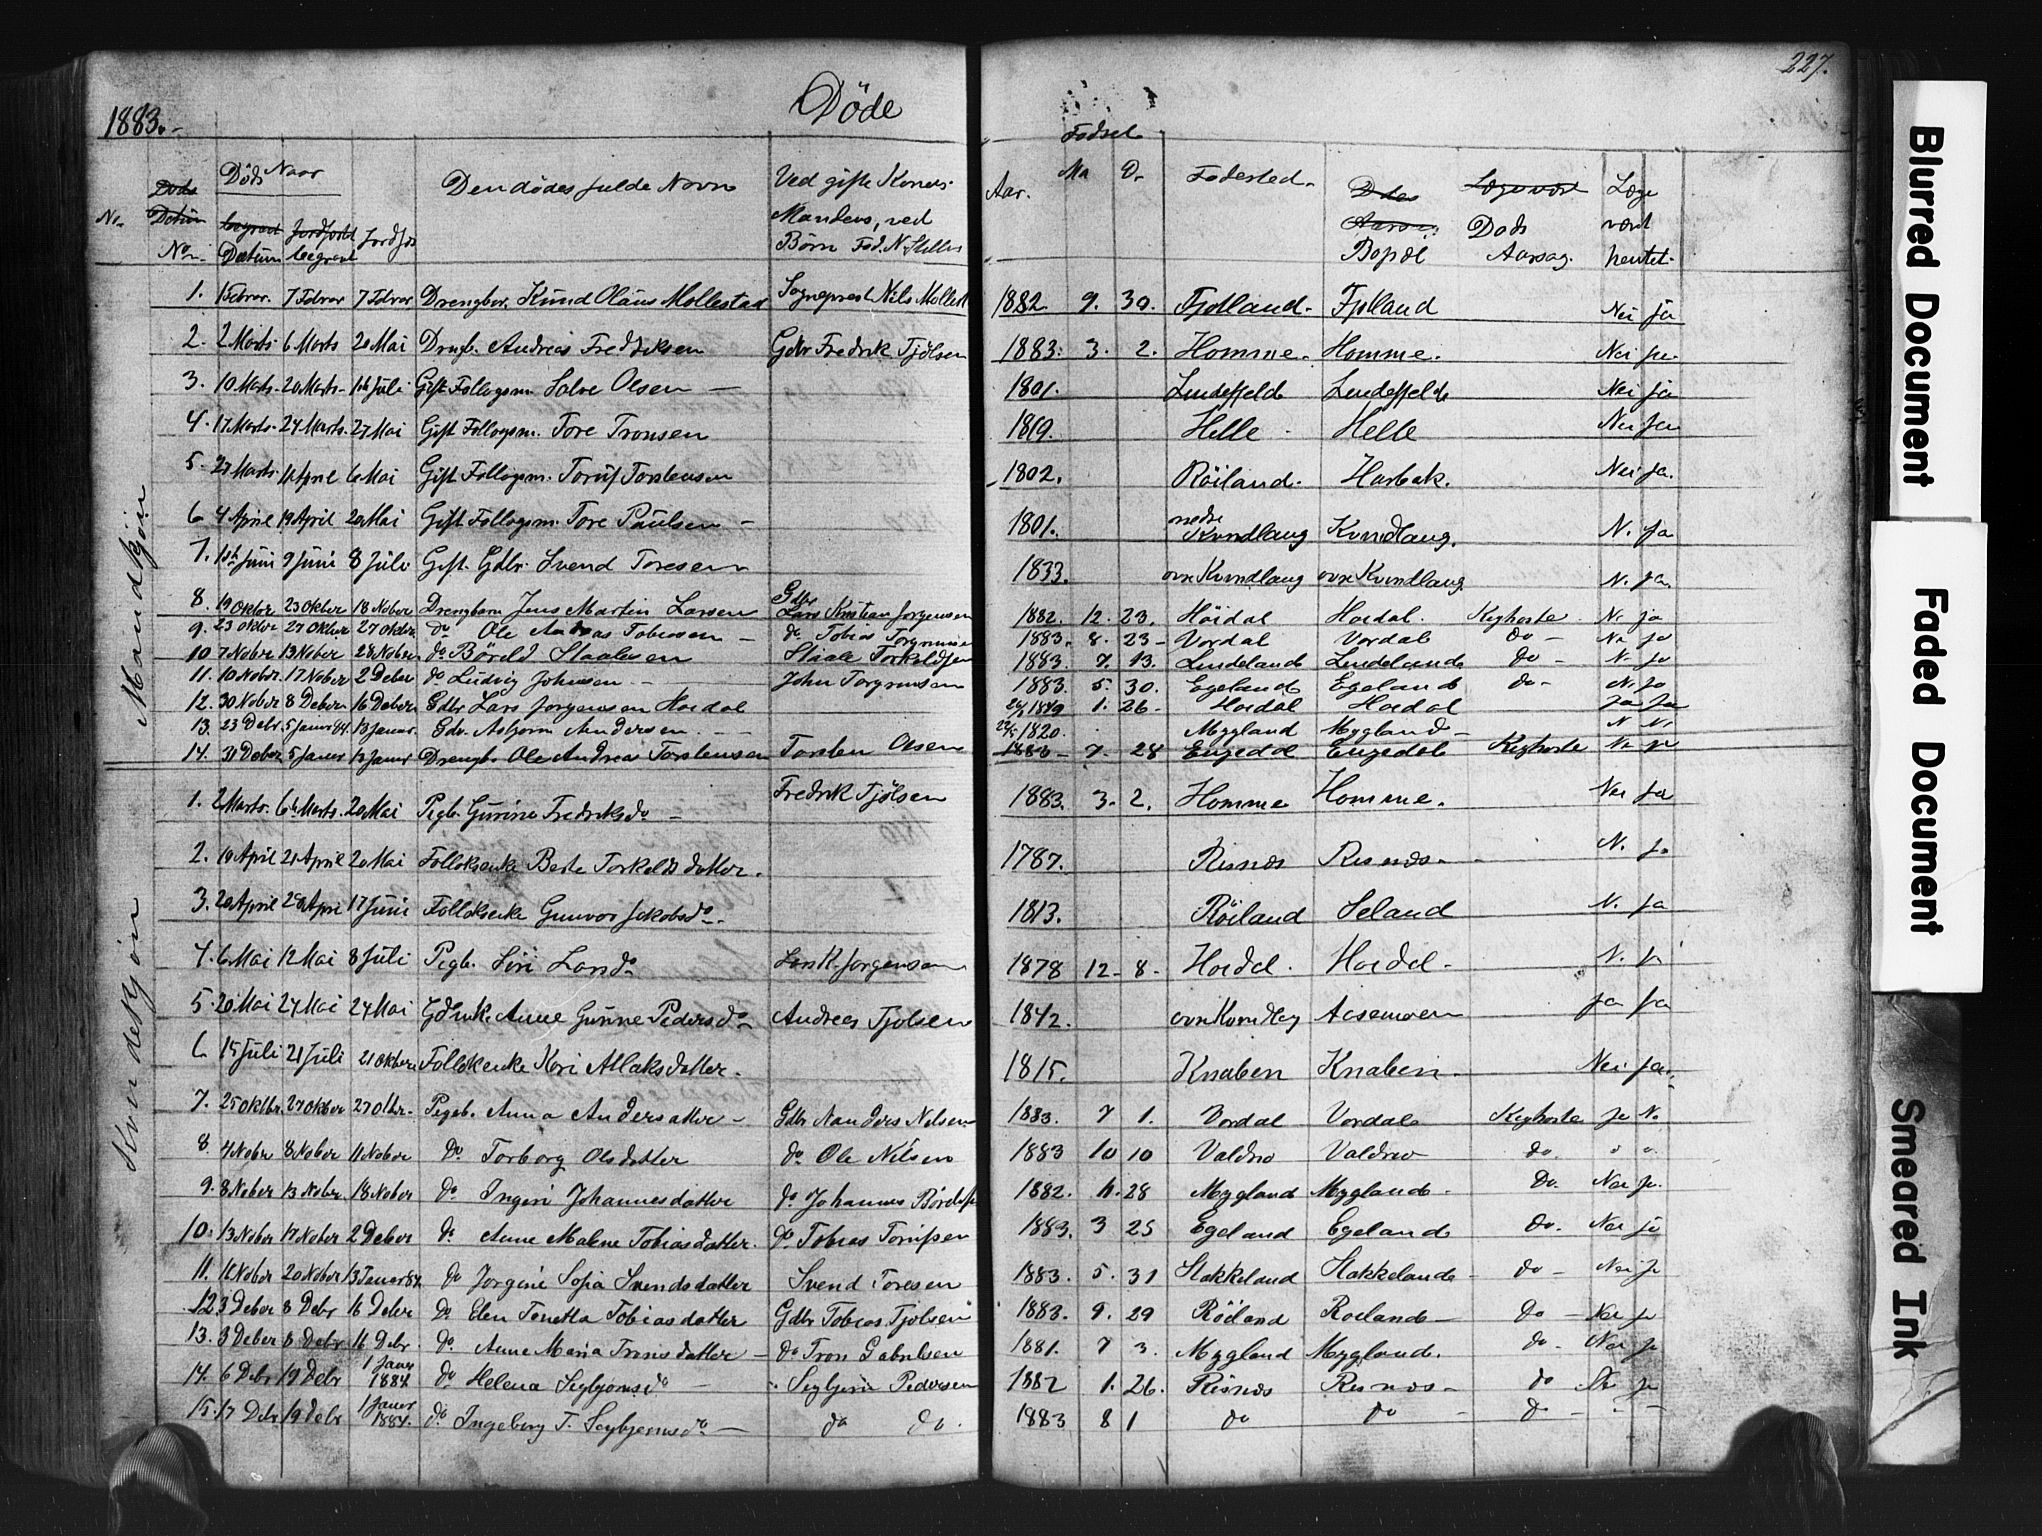 227.
1883.
Döde
Fødsel
No. Døds Datum No. Døds Naar Datum begravet Jordf. Den dødes fulde Navn Ved gifte Koners Mandens, ved Børn Fad. N. Stilling Aar. Ma D. Fødested. Bopæl Døds Aarsag. Læge været hentet.
Mandkjøn
1. 1 Febrar. 7 Febrar 7 Febrar Drengbr. Knud Olaus Mollestad Sogneprest Nils Mollest 1882 9. 30. Fjotland. Fjotland Nei ja
2. 2 Marts. 6 Marts 20 Mai Drngb. Andreas Fredriksen Gdbr Fredrik Tjølsen 1883. 3. 2. Homme. Homme. Nei ja
3. 10 Marts. 20 Marts. Juli Gift Follogsm. Salve Olsen — 1801. Lindefjeld Lindefjeld Nei ja
4. 17 Marts. 24 Marts. 27 Mai Gift Follogsm. Tore Tronsen 1819. Helle Helle Nei ja
5. 27 Marts 11 April 6 Mai Gift Follogsm. Torstensen 1802. Röiland. Harbak. Nei ja.
6 4 April 19 April 20 Mai Gift Follogsm. Tore Paulsen — 1801. nedre Kvindlaug Kvindlaug. N. ja
7. Juni 9 Juni 8 Juli Gift. Gdbr. Svend Toresen 1833. ovre Kvindlaug ovre Kvindlaug. N. ja.
8. 19 Oktbr 23 Oktber 18 Nober Drengbarn Jens Martin Larsen Gdbr Lars Kristian Jorgensen 1882. 12. 23. Höidal Hoidal. Kighoste N. ja
9. 23 oktbr 27 Oktber 27 Oktbr do Ole Andreas Tobiasen — do Tobias 1883. 8. 23 — Vordal Vordal do — Ne ja
10 7 Nober 13 Nober Nober do Böreld Staalesen Staale Torkeldsen 1883. 7. 13. Lindeland Lindeland do — N. ja
11. 10 Nober. 17 Nober 2 Deber do Ludvig Johnsen — John 1883. 5. 30. Egeland Egeland do — N. ja
12. 30 Nober 8 Deber 16 Deber Gdbr Lars Jorgensen Hoidal 1. 26. Hoidal Hoidal ja ja
13. 23 Debr. 5 Januar 84. 13 Januar. Gdbr. Asbjorn Andersen — 1820. Mygland Mygland N N.
14. 31 Deber 5 Januar 13 Januar Drengb. Ole Andreas Torstensen Torsten Olsen 1883 — 7. 28 Engedal Engedal Kighoste Ne ja
Kvindekjön
1. 2 Marts. 6 Marts. 20 Mai Pigb. Gurine Fredriksdo — Fredrik Tjölsen 1883. 3. 2. Homme Homme. Nei ja
2. 10 April 21 April 20 Mai Follokenke Berte Torkeldsdatter. 1787. Risnæs Risnæs. N. ja
3. 20 April 29 April 17 Juni Follokenke Gunvor Jakobsdo. 1813. Röiland Seland N. ja
4. 6 Mai 12 Mai 8 Juli Pigb. Siri Larsdo Lars K. Jorgensen 1878 12. 8. Hoidal. Hoidal. N. ja
5. 20 Mai 24 Mai 24 Mai Gdenke. Anne Gurine Pedersdo — Andreas Tjolsen 1842. ovre Kvindlog ja ja
6. 15 Juli 21 Juli 21 Oktber Follokenke Kari Atlaksdatter. 1815. Knaben Knaben. Nei ja.
7. 25 oktbr. 27 Oktber 27 Oktbr. Pigeb. Anna Andersdatter — Gdbr Nanders Nilsen 1883. 7 1. Vordal Vordal Kighoste ja N.
8 4 Nobr 8 Nober 11 Nober do Torborg Olsdatter do Ole Nilsen 1883 10 10 Valdrø Valdrø do. " "
9. 8 Nober 13 Nobr. 18 Nober do Ingeri Johannesdatter do Johannes 1882. 11. 28 Mygland Mygland. Do. Nei ja.
10. 13 Nober 17 Nober 2 Deber do. Anne Malene Tobiasdatter. do. Tobias 1883. 3 25 Egeland Egeland do. Nei ja
11. Nober 20 Nober 13 Januar 84. do Jorgine Sofia Svendsdatter Svend Toresen 1883. 5. 31 Stakkeland Stakkeland do — Nei ja
12 3 Deber 8 Debr 16 Debr Do. Elen Tonetta Tobiasdatter Gdbr Tobias Tjolsen 1883. 9. 29 Röiland Roiland — Do — Nei ja
13. 3 Deber 8 Debr 16 Debr do. Anne Maria Tronsdatter — do Tron Gabrilsen 1881. 7 3. Mygland Mygland. do. Nei ja
14. 6 Debr 19 Debr 1 Januar 1884 do Helena — Pedersen 1882 1. 26. Risnæs Risnæs — do ja
15. 17 Debr 19 Debr 1 Januar 1884. do. Ingeborg T. — do do. 1883 8 1 do do do — " —
Blurred Document
Faded Document
Smeared Ink